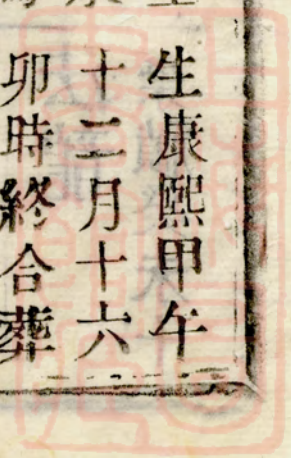 生康熙甲午
十二月十六
卯時終合葬